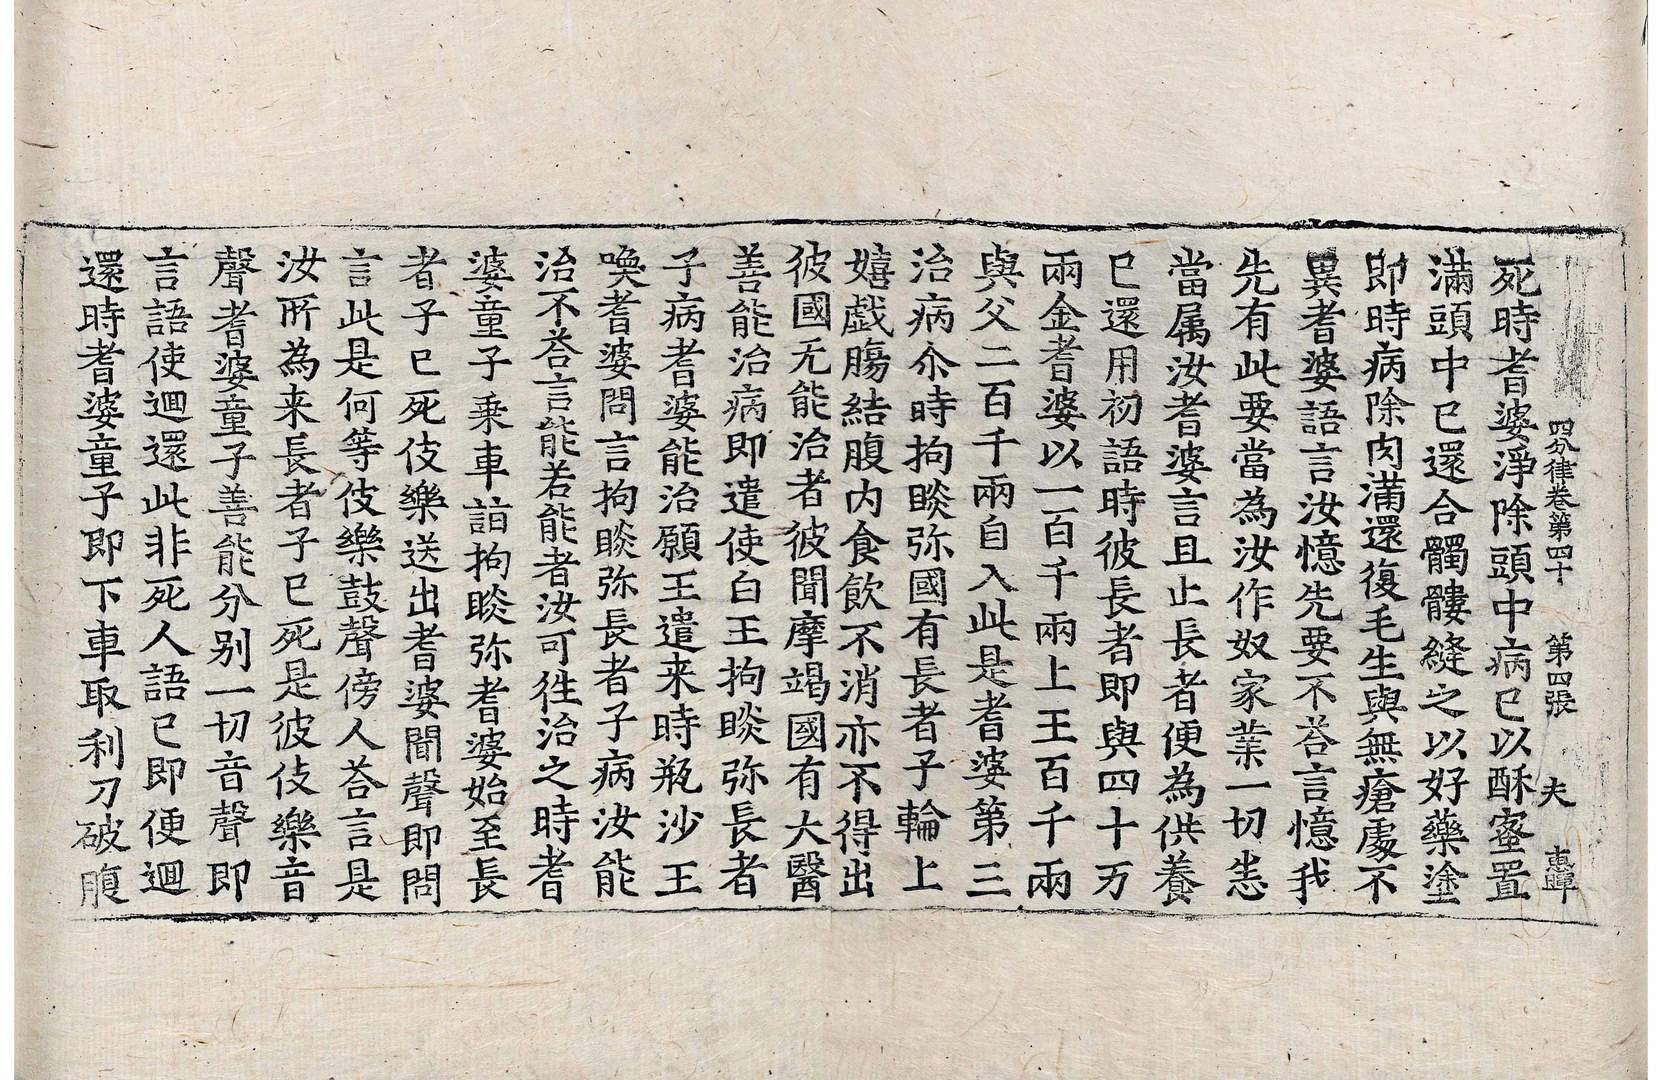 四分律卷第四十　第四張　夫　惠暉
死時耆婆淨除頭中病已以酥蜜置
滿頭中已還合髑髏縫之以好藥塗
即時病除肉滿還復毛生與無瘡處不
異耆婆語言汝憶先要不荅言憶我
先有此要當為汝作奴家業一切悉
當属汝耆婆言且止長者便為供養
已還用初語時彼長者即與四十万
兩金耆婆以一百千兩上王百千兩
與父二百千兩自入此是耆婆第三
治病尒時拘睒弥國有長者子輪上
嬉戲腸結腹内食飲不消亦不得出
彼國无能治者彼聞摩竭國有大醫
善能治病即遣使白王拘睒弥長者
子病耆婆能治願王遣来時瓶沙王
喚耆婆問言拘睒弥長者子病汝能
治不荅言能若能者汝可往治之時耆
婆童子乗車詣拘睒弥耆婆始至長
者子已死伎樂送出耆婆聞聲即問
言此是何等伎樂鼓聲傍人荅言是
汝所為来長者子已死是彼伎樂音
聲耆婆童子善能分别一切音聲即
言語使迴還此非死人語已即便迴
還時耆婆童子即下車取利刀破腹